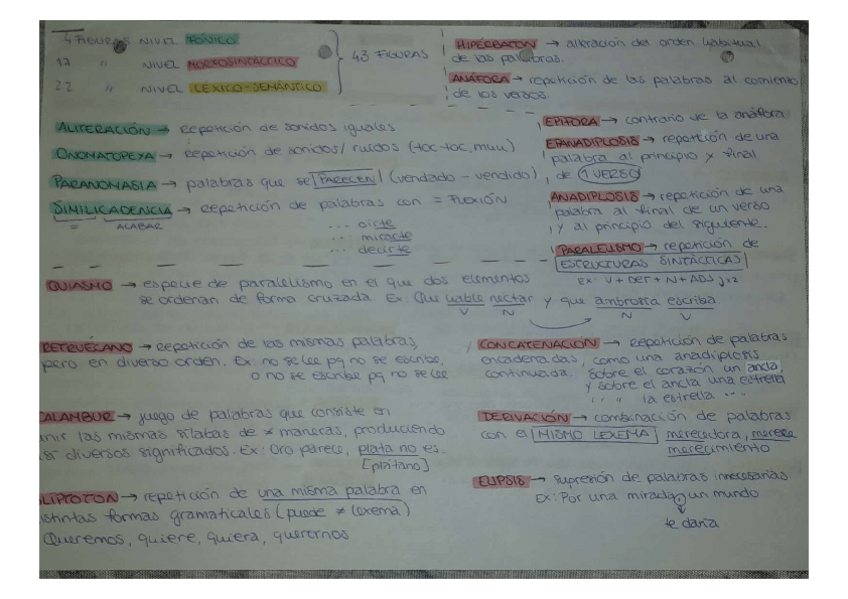 4 FIGURAS NIVEL FÓNICO
17 " NIVEL MORFOSINTÁCTICO
22 " NIVEL LÉXICO-SEMÁNTICO
43 FIGURAS
HIPÉRBATON → alteración del orden habitual
de las palabras.
ANÁFORA → repetición de las palabras al comienzo
de los versos.
ALITERACIÓN → repetición de sonidos iguales
ONOMATOPEYA → repetición de sonidos/ruidos (toc-toc, muu)
PARANOMASIA → palabras que se PARECEN (vendado - vendido)
SIMILICADENCIA → repetición de palabras con = FLEXIÓN
= ACABAR
... oirte
.. mirarte
.. decirte
EPÍFORA → contrario de la anáfora
EPANADIPLOSIS → repetición de una
palabra al principio y final
de 1 VERSO
ANADIPLOSIS → repetición de una
palabra al final de un verso
y al principio del siguiente.
PARALELISMO → repetición de
ESTRUCTURAS SINTÁCTICAS
Ex: V + DET + N + ADJ
QUIASMO → especie de paralelismo en el que dos elementos
se ordenan de forma cruzada. Ex: Que hable néctar y que ambrosía escriba.
V N N V
RETRUÉCANO → Repetición de las mismas palabras,
pero en diverso orden. Ex: no se lee pq no se escribe,
o no se escribe pq no se lee
CONCATENACIÓN → Repetición de palabras
encadenadas, como una anadiplosis
continuada. Sobre el corazón un ancla,
y sobre el ancla una estrella
" " la estrella " "
CALAMBUR → juego de palabras que consiste en
unir las mismas sílabas de ≠ maneras, produciendo
así diversos significados. Ex: Oro parece, plata no es.
[plátano]
DERIVACIÓN → combinación de palabras
con el MISMO LEXEMA merecedora, merece
merecimiento
ELIPSIS → supresión de palabras innecesarias
Ex: Por una mirada, un mundo
te daría
OLIPTOTON → repetición de una misma palabra en
distintas formas gramaticales (puede ≠ lexema)
Queremos, quiere, quiera, querernos